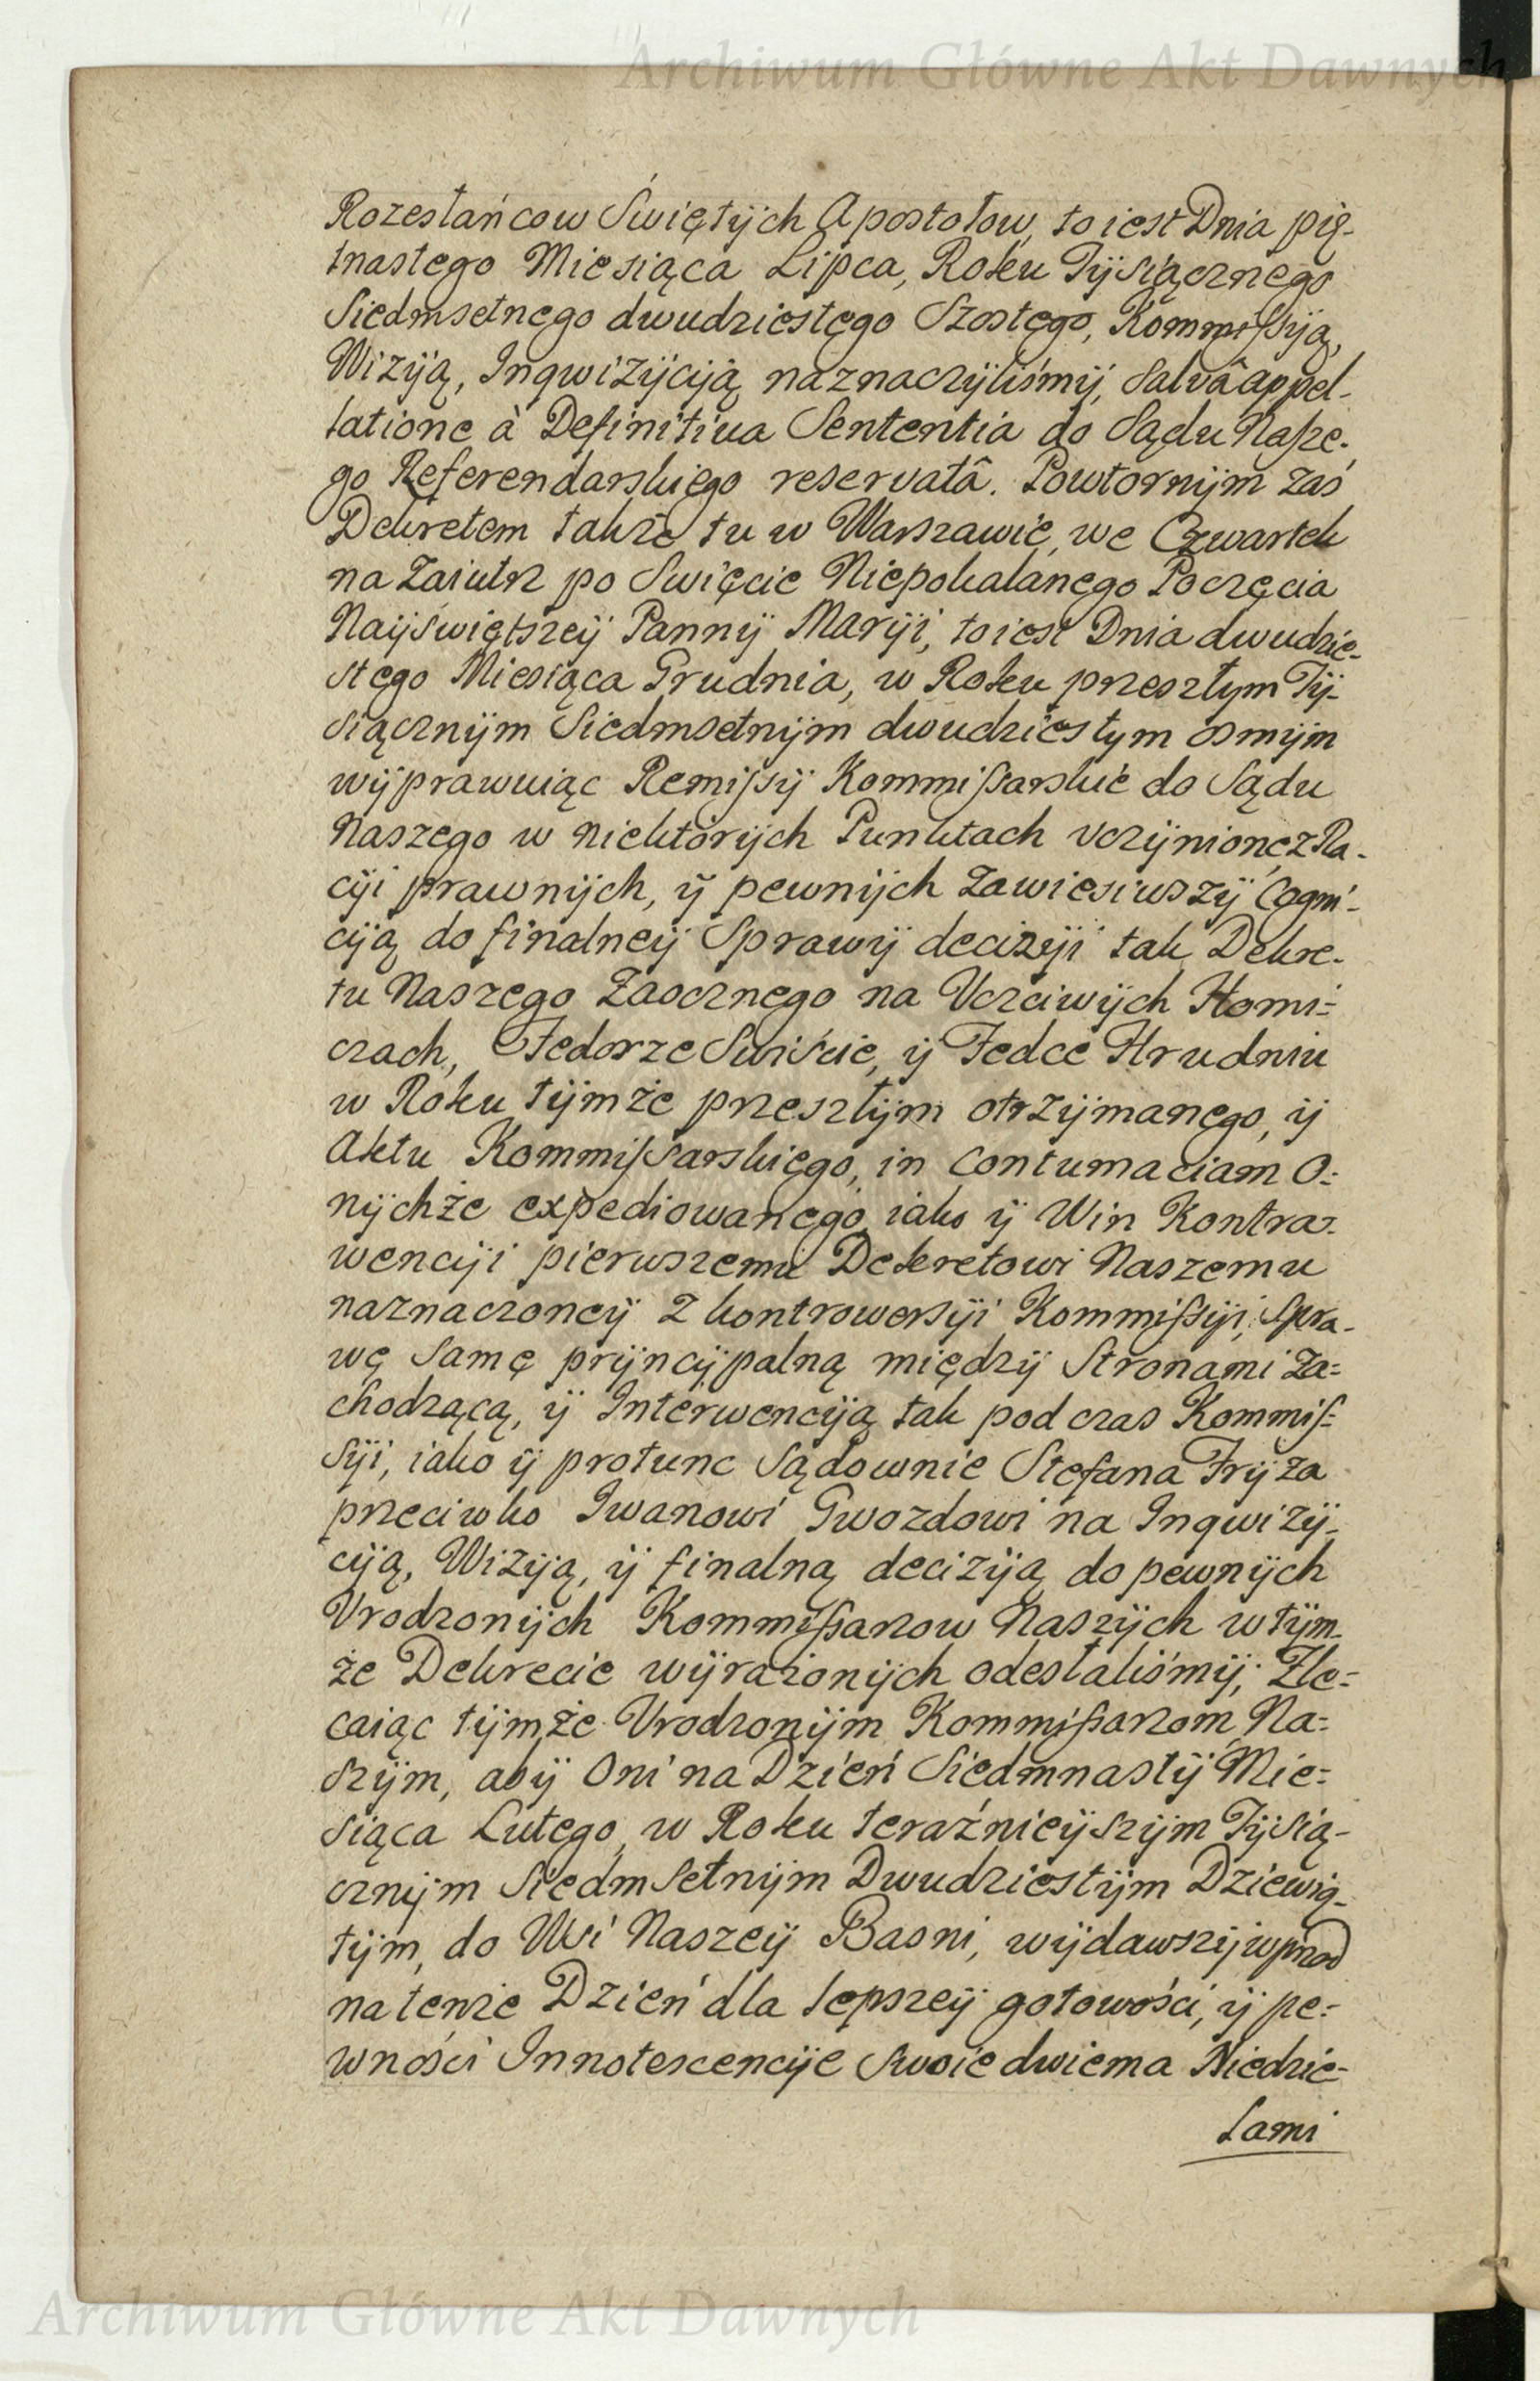 Archiwum Główne Akt Dawnych
Rozesłańcow Swiętÿch Apostołow, to iest Dnia pię-
tnastego Miesiąca Lipca, Roku Tÿsiącznego
Siedmsetnego dwudziestego Szostego, Kommissÿą,
Wizÿą, Inqwizÿcÿą naznaczÿliśmÿ, salvâ appel-
latione à Definitiva Sententia do Sądu Nasze-
go Referendarskiego reservatâ. Powtornÿm zaś
Dekretem także tu w Warszawie, we Czwartek
na Zaiutrz po Swięcie Niepokalanego Poczęcia
Naÿświętszeÿ Pannÿ Marÿi, to iest Dnia dwudzie-
stego Miesiąca Grudnia, w Roku przeszłym Tÿ-
siącznÿm Siedmsetnÿm dwudziestym osmÿm
wÿprawuiąc Remissÿ Kommissarskie do Sądu
Naszego w niektorÿch Punktach vczÿnionę z Ra-
cÿi prawnÿch, ÿ pewnÿch zawiesiwszÿ Cogni-
cÿą do finalneÿ Sprawÿ decizÿi tak Dekre-
tu Naszego Zaocznego na Vczciwÿch Homi-
czach, Fedorze Swiście, ÿ Fedce Hrudniu
w Roku tÿmże przeszłÿm otrzÿmanego, ÿ
Aktu Kommissarskiego, in Contumaciam O-
nÿchże expediowanego, iako ÿ Win Kontra-
wencÿi pierwszemu Dekretowi Naszemu
naznaczoneÿ z kontrowersÿi Kommissÿi, Spra-
wę samę prÿncÿpalną międzÿ Stronami za-
chodzącą, ÿ Interwencÿą tak podczas Kommis-
sÿi, iako ÿ protunc Sądownie Stefana Frÿza
przeciwko Iwanowi Gwozdowi na Inqwizÿ-
cÿą, Wizÿą, ÿ finalną decizÿą do pewnÿch
Vrodzonÿch Kommissarzow Naszÿch w tÿm-
że Dekrecie wÿrażonÿch odesłaliśmÿ; Zle-
caiąc tÿmże Vrodzonÿm Kommissarzom Na-
szÿm, abÿ Oni na Dzień Siedmnastÿ Mie-
siąca Lutego, w Roku teraźnieÿszÿm Tÿsią-
cznÿm Siedmsetnÿm Dwudziestÿm Dziewią-
tÿm, do Wsi Naszeÿ Basni, wÿdawszÿ wprzod
na tenże Dzień dla lepszeÿ gotowości, ÿ pe-
wności Innotescencÿe swoie dwiema Niedzie-
lami
Archiwum Główne Akt Dawnych